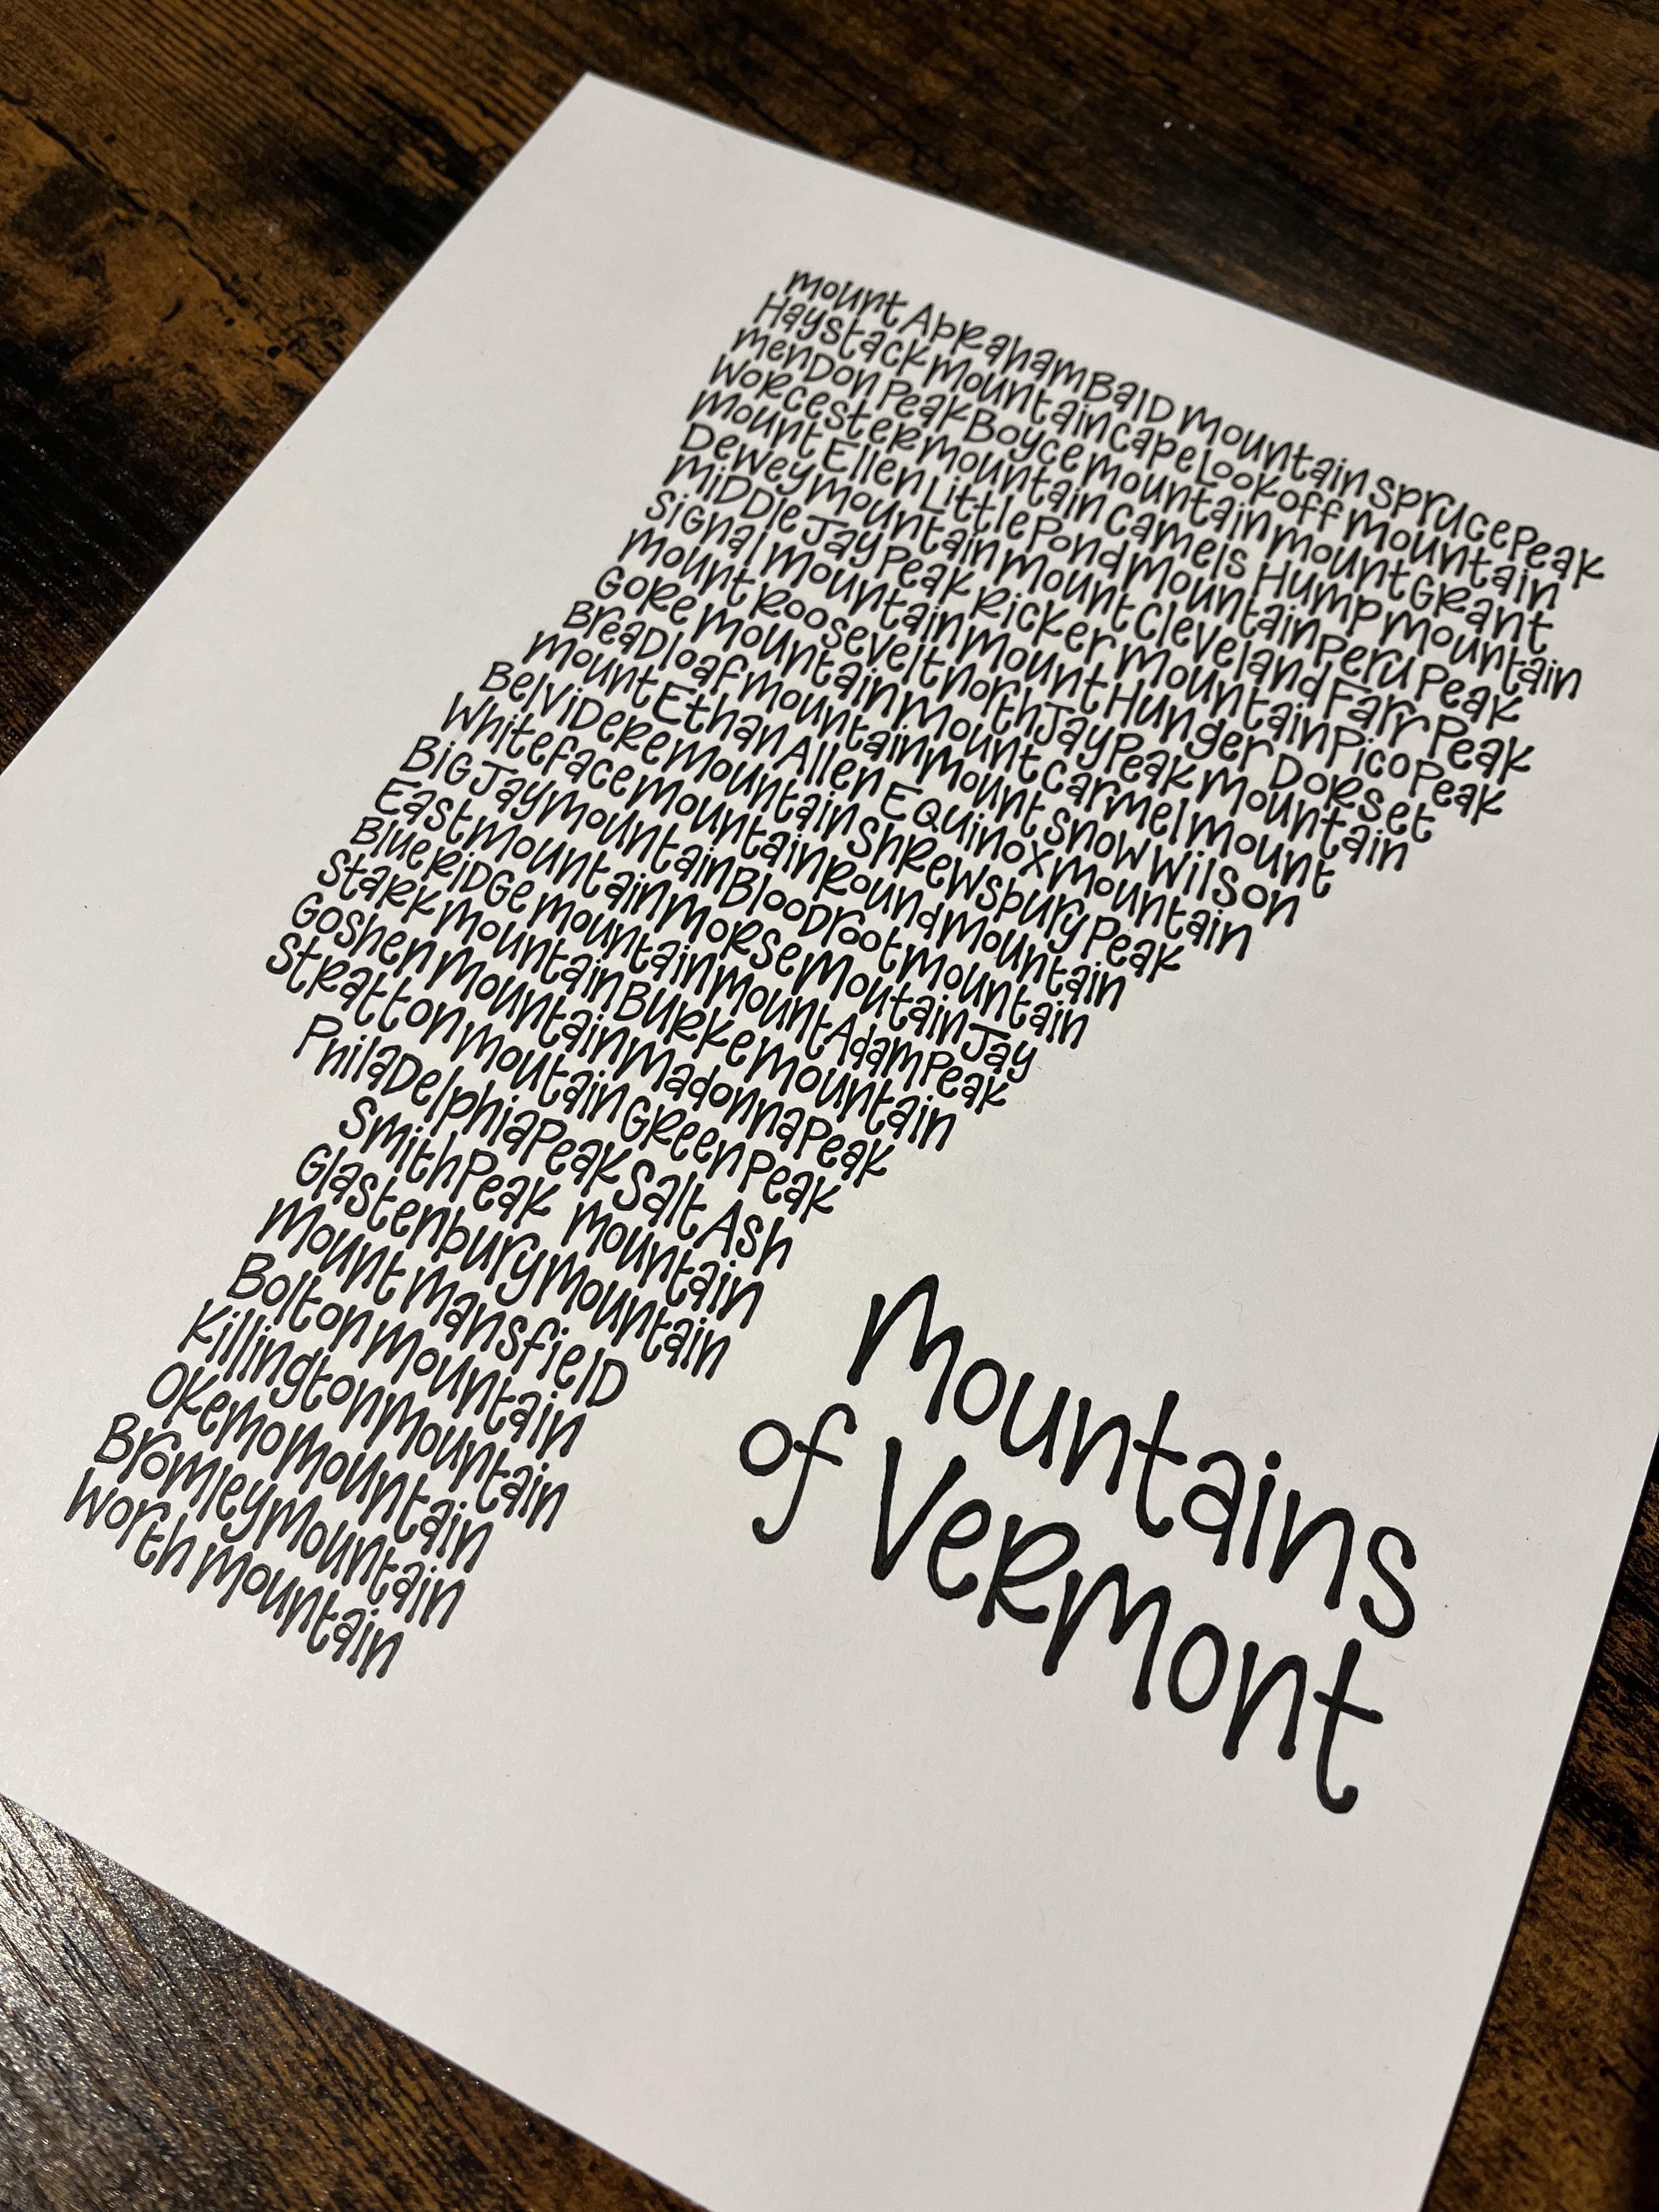 Mount Abraham Bald Mountain Spruce Peak
Haystack Mountain Cape Lookoff Mountain
Mendon Peak Boyce Mountain Mount Grant
Worcester Mountain Camels Hump Mountain
Mount Ellen Little Pond Mountain Peru Peak
Dewey Mountain Mount Cleveland Farr Peak
Middle Jay Peak Ricker Mountain Pico Peak
Signal Mountain Mount Hunger Dorset
Mount Roosevelt North Jay Peak Mountain
Gore Mountain Mount Carmel Mount
Breadloaf Mountain Mount Snow Wilson
Mount Ethan Allen Equinox Mountain
Belvidere Mountain Shrewsbury Peak
Whiteface Mountain Round Mountain
Big Jay Mountain Bloodroot Mountain
East Mountain Morse Moutain Jay
Blue Ridge Mountain Mount Adam Peak
Stark Mountain Burke Mountain
Goshen Mountain Madonna Peak
Stratton Moutain Green Peak
Philadelphia Peak Salt Ash
Smith Peak Mountain
Glastenbury Mountain
Mount Mansfield
Bolton Mountain
Killington Mountain
Okemo Mountain
Bromley Mountain
Worth Mountain
Mountains
of Vermont